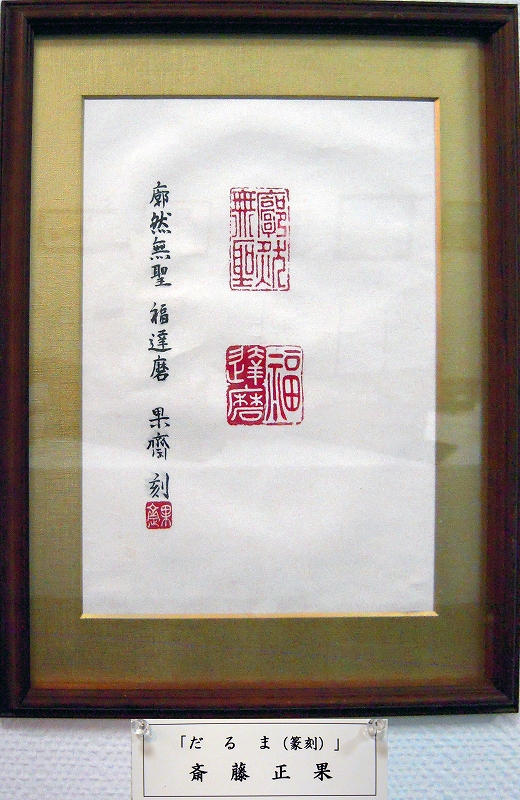 廓然
無聖
福
達磨
廓然無聖 福達磨 果齋 刻
果齋
「だるま(篆刻)」
斎藤正果